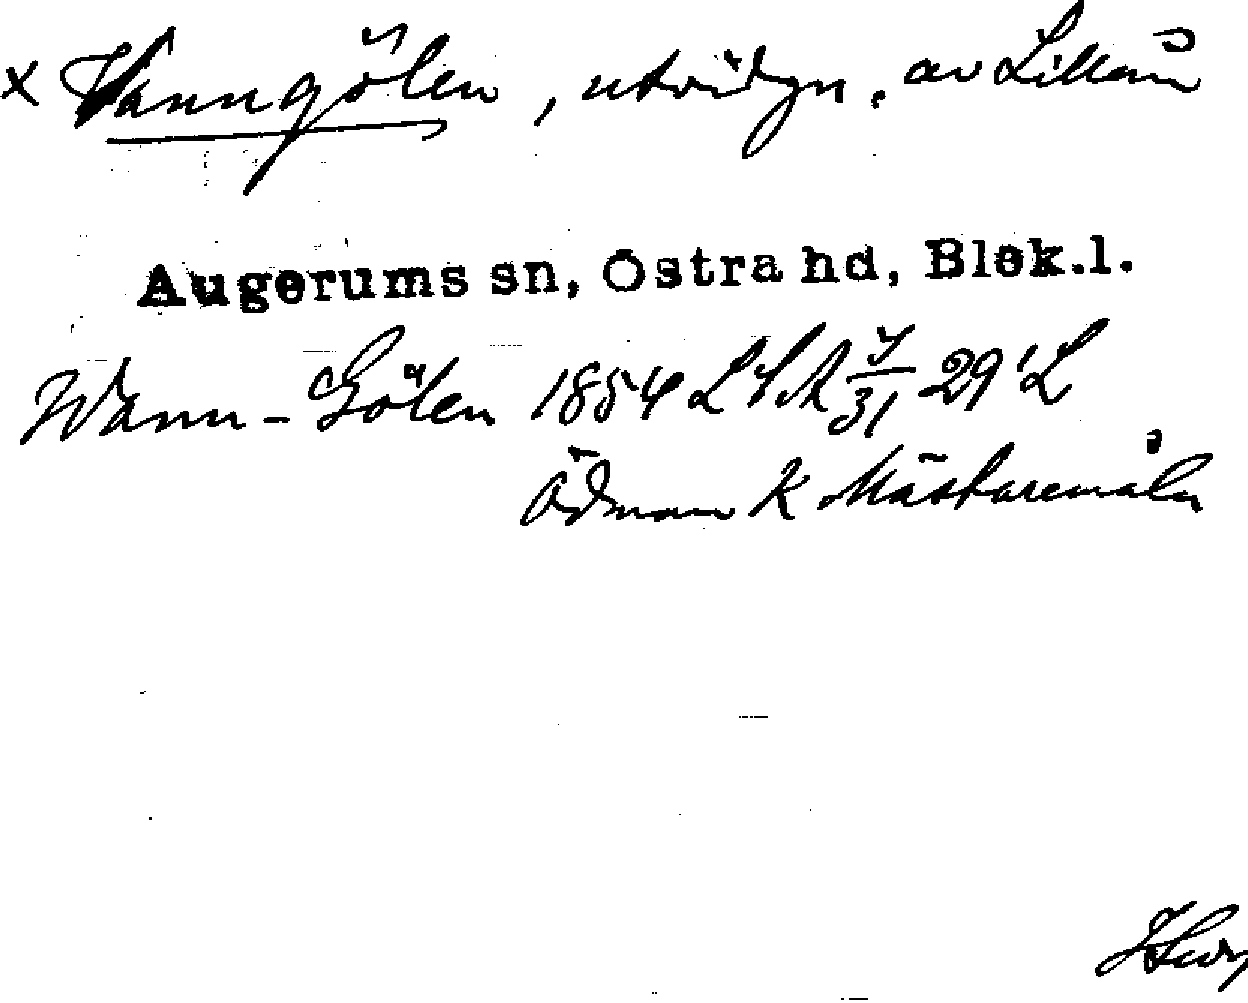 x Vanngölen, utvidgn. av Lillån
Augerums sn, Östra hd, Blek.l.
Wann-Gölen 1854 LSA 7/31 29 L
Ödman K Mästaremåla